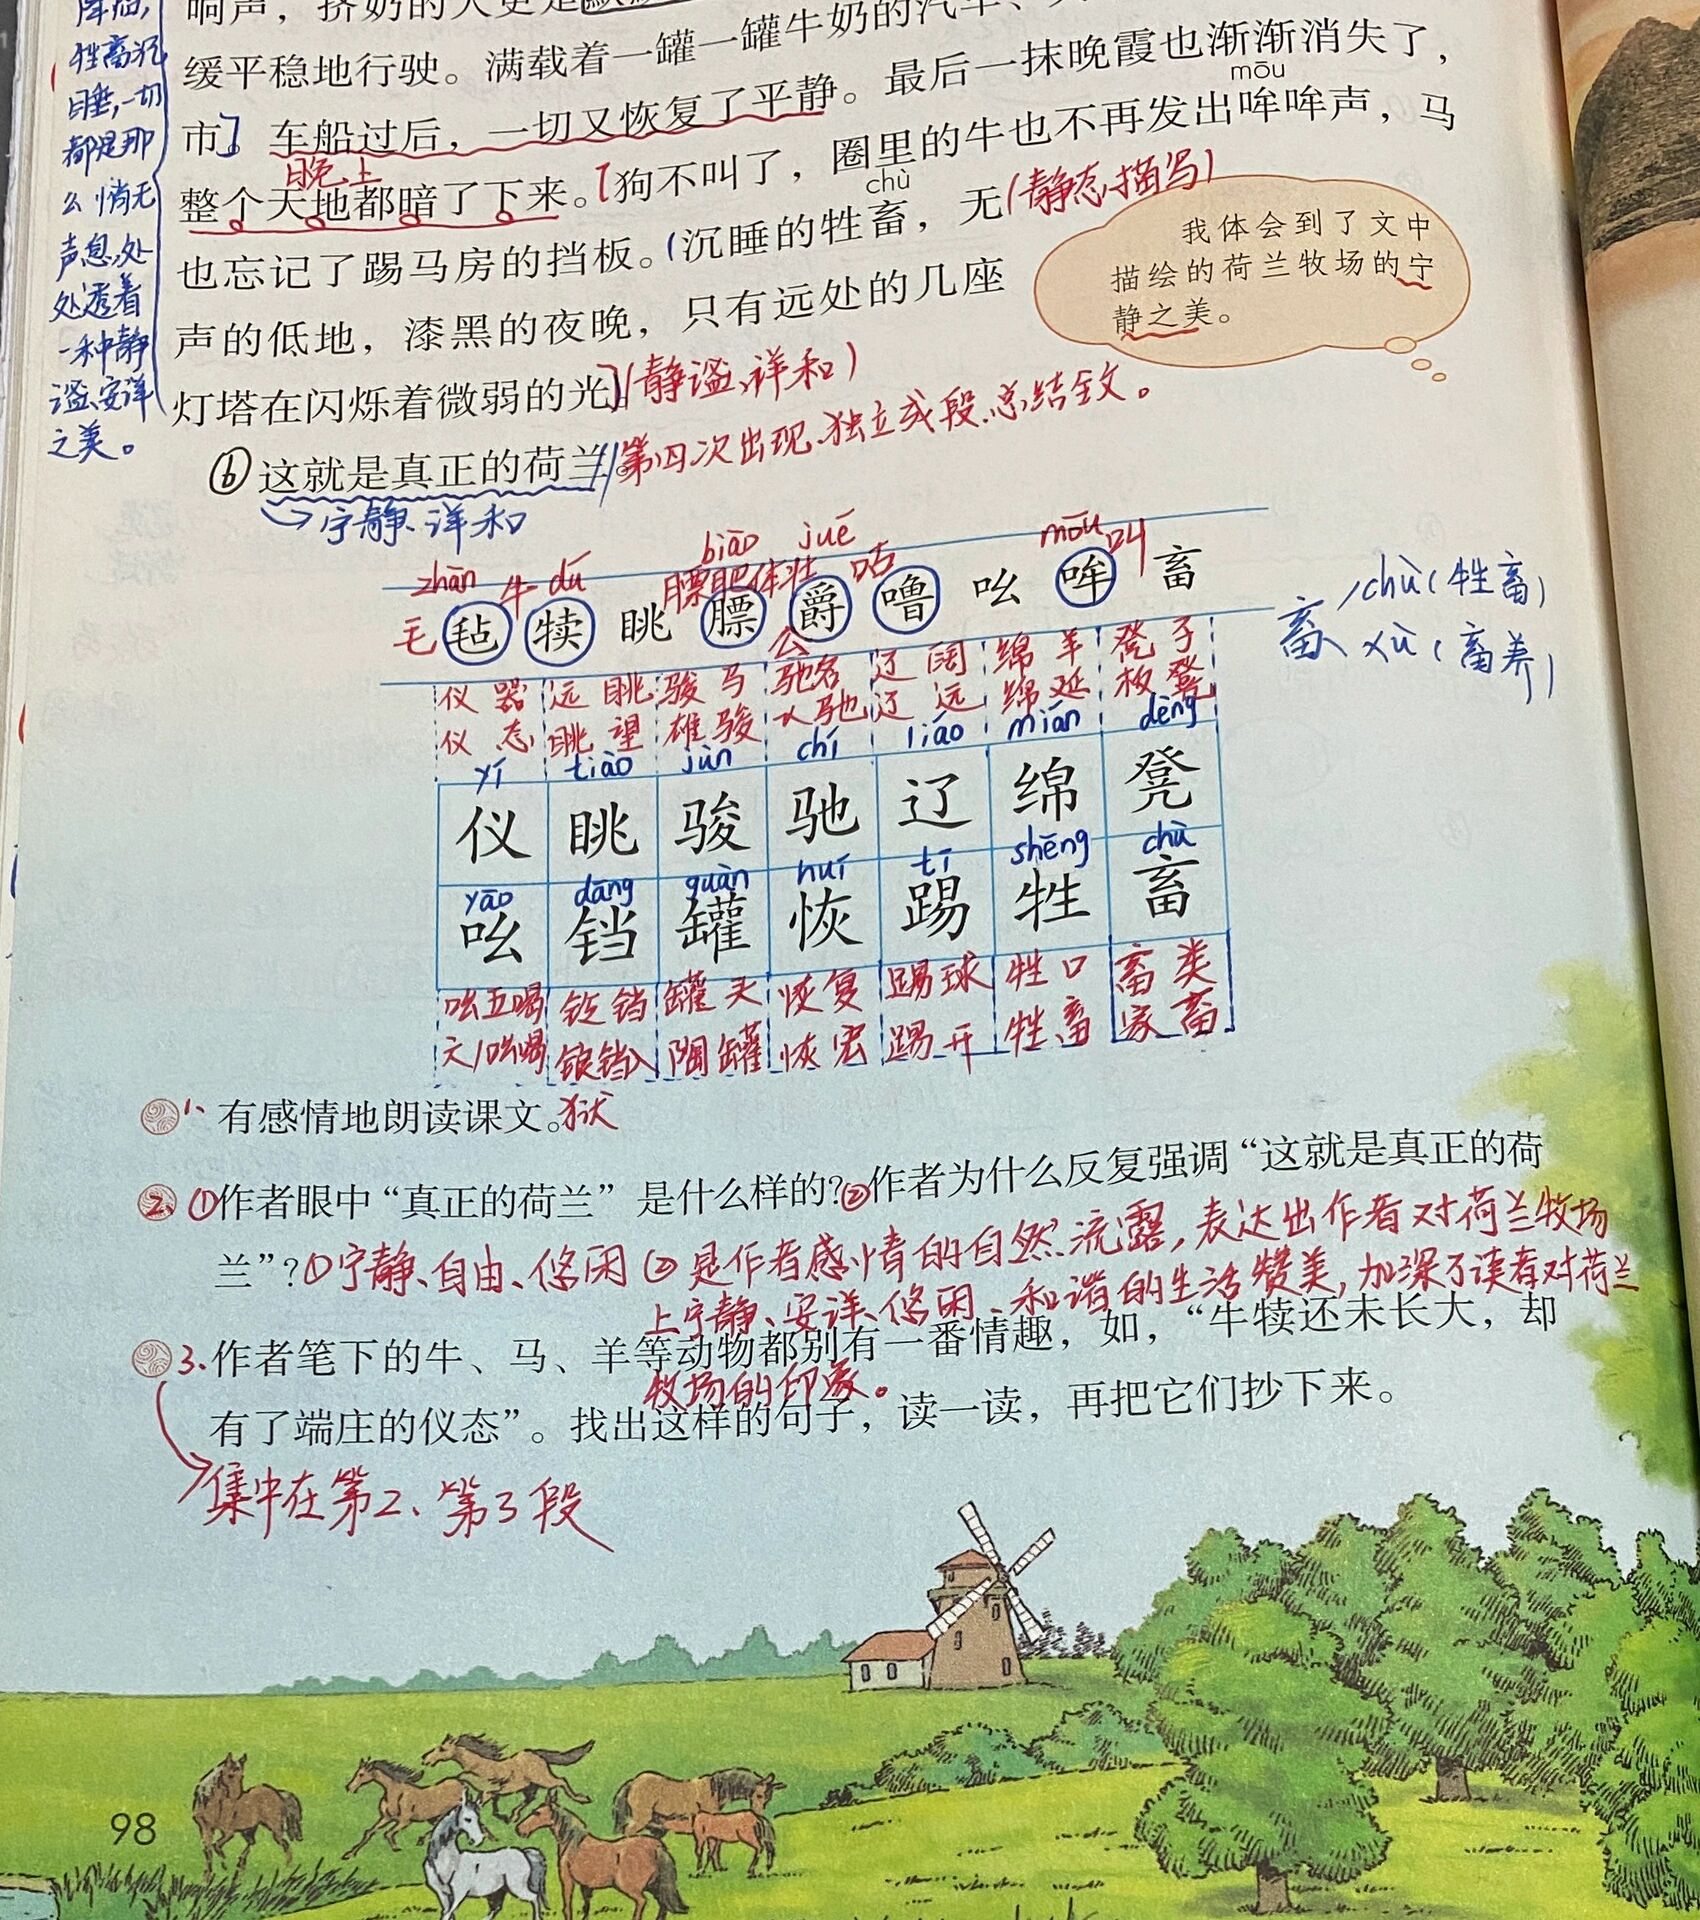 降临，
牲畜沉
睡，一切
都是那
么悄无
声息，处
处透着
一种静
谧、安详
之美。
缓平稳地行驶。满载着一罐一罐牛奶的汽车、
市】。车船过后，一切又恢复了平静。最后一抹晚霞也渐渐消失了，
晚上
整个天地都暗了下来。[狗不叫了，圈里的牛也不再发出哞哞声，马
mōu
也忘记了踢马房的挡板。(沉睡的牲畜，无
chù
(静态描写)
声的低地，漆黑的夜晚，只有远处的几座
灯塔在闪烁着微弱的光](静谧、祥和)
我体会到了文中
描绘的荷兰牧场的宁
静之美。
⑥这就是真正的荷兰。//第四次出现、独立成段、总结全文。
宁静、祥和
zhān 牛 dú biāo jué mōu
膘肥体壮 咕 叫
毛 毡 犊 眺 膘 爵 噜 吆 哞 畜
公
畜 chù(牲畜)
xù(畜养)
仪器 远眺 骏马 驰名 辽阔 绵羊 凳子
仪态 眺望 雄骏 飞驰 辽远 绵延 板凳
yí tiào jùn chí liáo mián dèng
仪 眺 骏 驰 辽 绵 凳
yāo dāng guàn huī tī shēng chù
吆 铛 罐 恢 踢 牲 畜
吆五喝 铃铛 罐头 恢复 踢球 牲口 畜类
六/吆喝 锒铛入 陶罐 恢宏 踢开 牲畜 家畜
狱
1、有感情地朗读课文。
2、①作者眼中“真正的荷兰”是什么样的?②作者为什么反复强调“这就是真正的荷
兰”?①宁静、自由、悠闲 ②是作者感情的自然流露，表达出作者对荷兰牧场
上宁静、安详、悠闲、和谐的生活赞美，加深了读者对荷兰
牧场的印象。
3、作者笔下的牛、马、羊等动物都别有一番情趣，如，“牛犊还未长大，却
有了端庄的仪态”。找出这样的句子，读一读，再把它们抄下来。
集中在第2、第3段
98